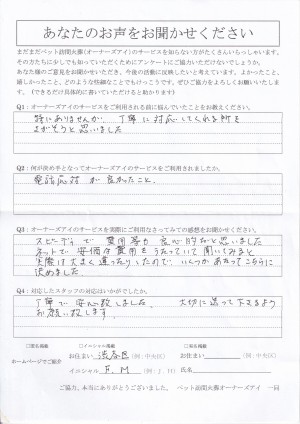 あなたのお声をお聞かせください
まだまだペット訪問火葬(オーナーズアイ)のサービスを知らない方がたくさんいらっしゃいます。
その方たちに少しでも知っていただくためにアンケートにご協力いただけないでしょうか。
あなた様のご意見をお聞かせいただき、今後の活動に反映したいと考えています。よかったこと、
嬉しかったこと、どのような些細なことでもけっこうです。ぜひご協力をよろしくお願いいたします。
(できるだけ具体的に書いていただけると助かります)
Q1:オーナーズアイのサービスをご利用される前に悩んでいたことをお教えください。
特にありませんが、丁寧に対応してくれる所を
さがそうと思いました
Q2:何が決め手となってオーナーズアイのサービスをご利用されましたか。
電話応対が良かったこと。
Q3:オーナーズアイのサービスを実際にご利用なさってみての感想をお聞かせください。
スピーディで費用等も良心的だと思いました
ネットで安価な費用をうたっていて聞いてみると
実際は大きく違ったりしたので、いくつかあたってこちらに
決めました
Q4:対応したスタッフの対応はいかがでしたか。
丁寧で安心致しました。 大切に送って下さるよう
お願い致します。
□匿名掲載 □イニシャル掲載 □実名掲載
ホームページでご紹介 お住まい 渋谷区 (例:中央区) お住まい (例:中央区)
イニシャル F.M (例:J.H) 氏名
ご協力、本当にありがとうございました。 ペット訪問火葬オーナーズアイ 一同